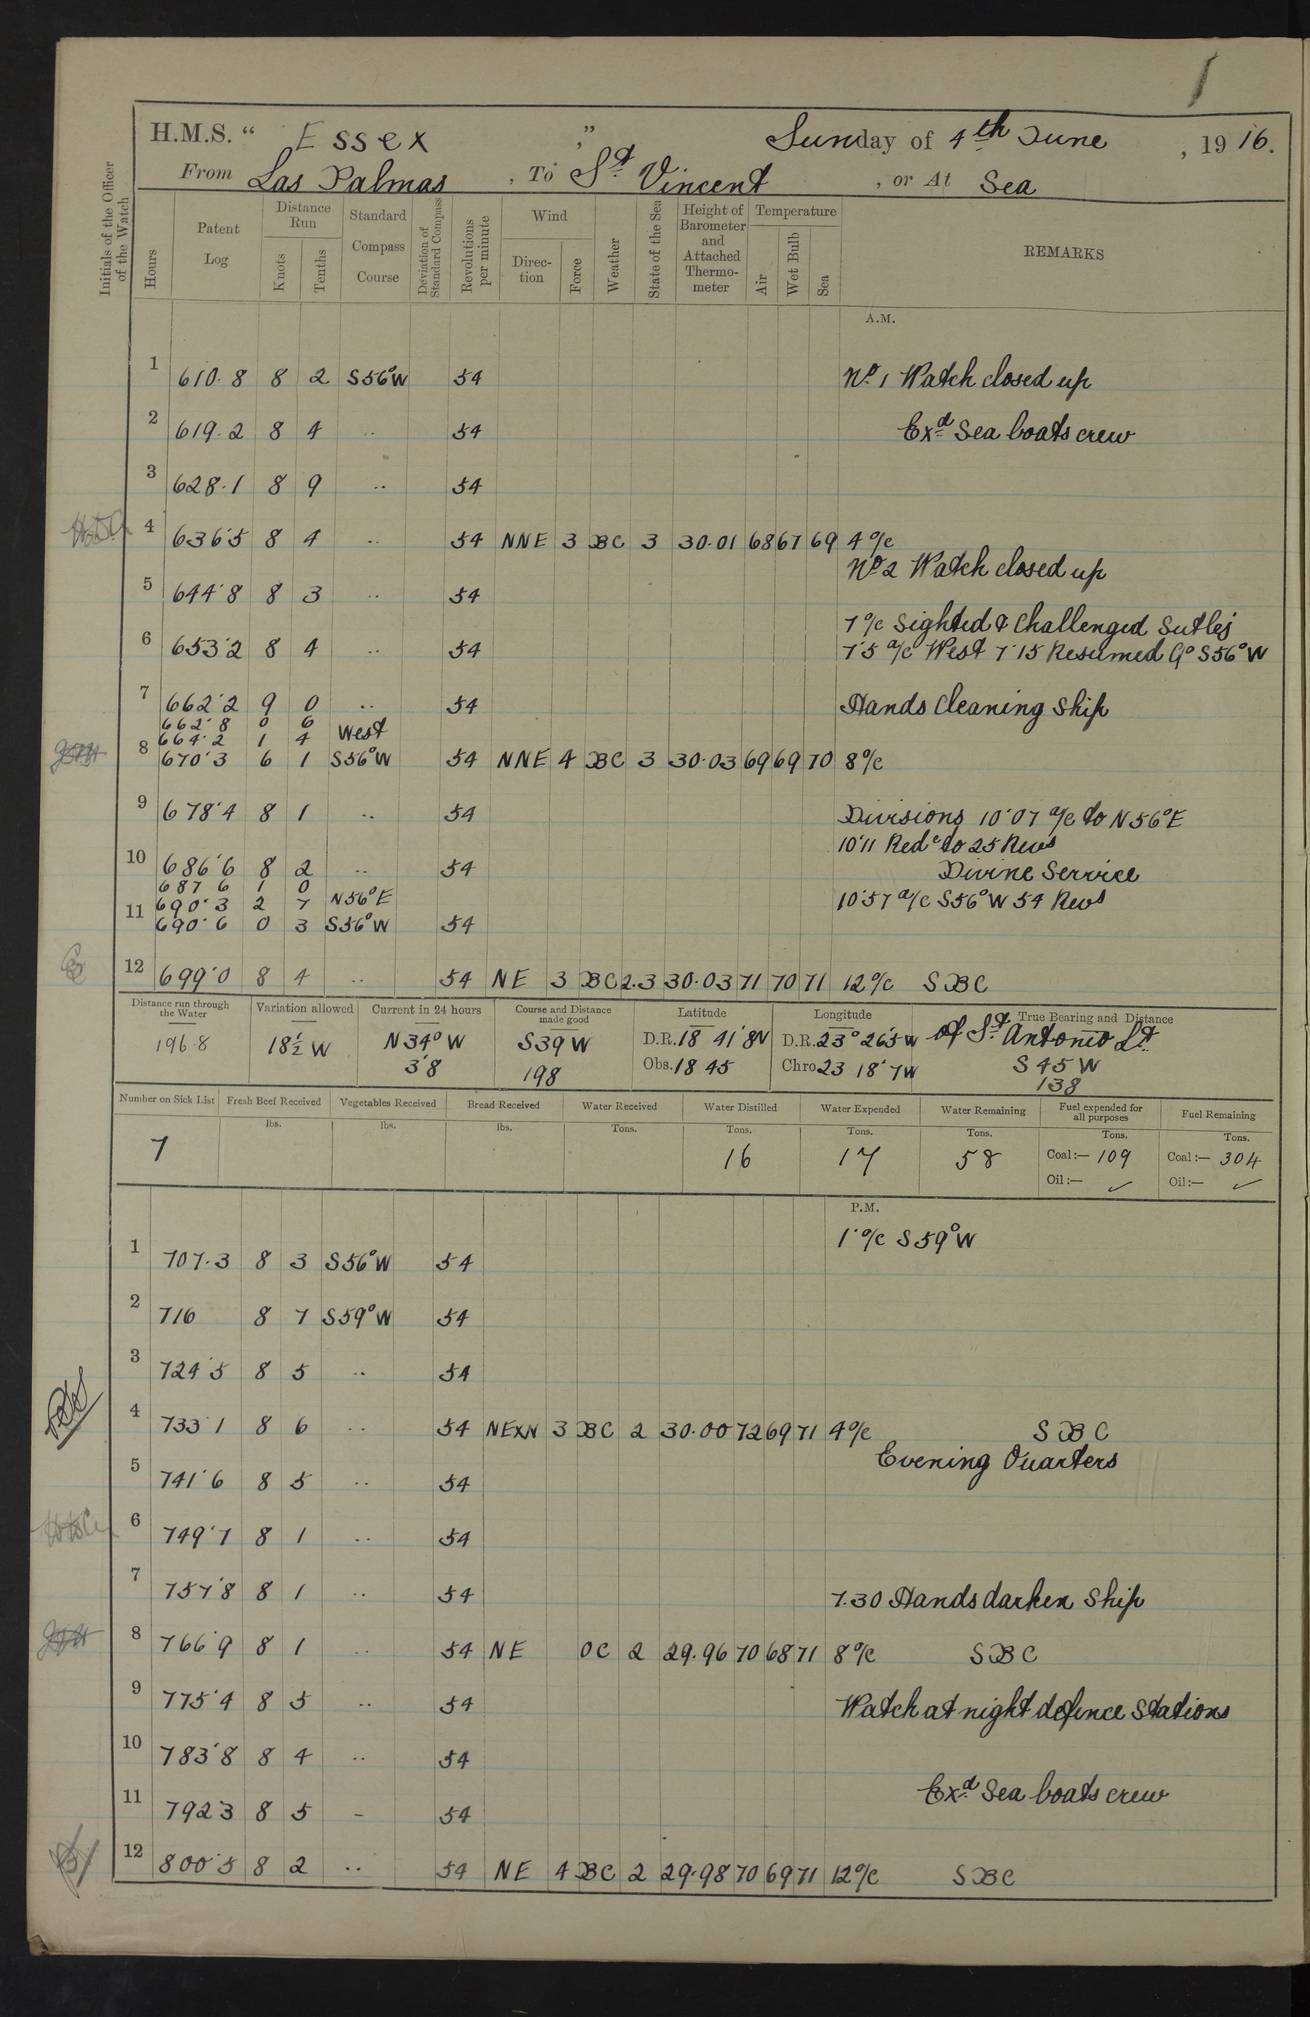 1
H.M.S. “ Essex ” Sunday of 4th June , 1916.
From Las Palmas , To St Vincent , or At Sea
Initials of the Officer of the Watch
Hours
Patent Log
Distance Run
Knots
Tenths
Standard Compass Course
Deviation of Standard Compass
Revolutions per minute
Wind
Direction
Force
Weather
State of the Sea
Height of Barometer and Attached Thermometer
Temperature
Air
Wet Bulb
Sea
REMARKS
A.M.
1 610.8 8 2 S56°W 54 No. 1 Watch closed up
2 619.2 8 4 .. 54 Exd Sea boats crew
3 628.1 8 9 .. 54
4 636.5 8 4 .. 54 NNE 3 BC 3 30.01 68 67 69 4 o/c
No 2 Watch closed up
5 644.8 8 3 .. 54
7 o/c Sighted & Challenged Sutlej
6 653.2 8 4 .. 54 7.5 a/c West 7.15 Resumed Co S56°W
7 662.2 9 0 .. 54 Hands Cleaning Ship
662.8 0 6
664.2 1 4 West
8 670.3 6 1 S56°W 54 NNE 4 BC 3 30.03 69 69 70 8 o/c
9 678.4 8 1 .. 54 Divisions 10.07 a/c to N56°E
10.11 Redc to 25 Revs
10 686.6 8 2 .. 54 Divine Service
687 6 1 0
690.3 2 7 N56°E 10.57 a/c S56°W 54 Revs
11 690.6 0 3 S56°W 54
12 699.0 8 4 .. 54 NE 3 BC 2.3 30.03 71 70 71 12 o/c SBC
Distance run through the Water
196.8
Variation allowed
18½ W
Current in 24 hours
N34°W
3.8
Course and Distance made good
S39W
198
Latitude
D.R. 18 41.8N
Obs. 18 45
Longitude
D.R. 23° 26.5W
Chro 23 18.7W
True Bearing and Distance
of St. Antonio Lt.
S 45 W
138
Number on Sick List
7
Fresh Beef Received
lbs.
Vegetables Received
lbs.
Bread Received
lbs.
Water Received
Tons.
Water Distilled
Tons.
16
Water Expended
Tons.
17
Water Remaining
Tons.
58
Fuel expended for all purposes
Tons.
Coal:— 109
Oil:— ✓
Fuel Remaining
Tons.
Coal:— 304
Oil:— ✓
P.M.
1 o/c S59°W
1 707.3 8 3 S56°W 54
2 716 8 7 S59°W 54
3 724.5 8 5 .. 54
4 733.1 8 6 .. 54 NExN 3 BC 2 30.00 72 69 71 4 o/c SBC
Evening Quarters
5 741.6 8 5 .. 54
6 749.7 8 1 .. 54
7 757.8 8 1 .. 54 7.30 Hands darken Ship
8 766.9 8 1 .. 54 NE OC 2 29.96 70 68 71 8 o/c SBC
9 775.4 8 5 .. 54 Watch at night defence Stations
10 783.8 8 4 .. 54
Exd Sea boats crew
11 792.3 8 5 - 54
12 800.5 8 2 .. 54 NE 4 BC 2 29.98 70 69 71 12 o/c SBC